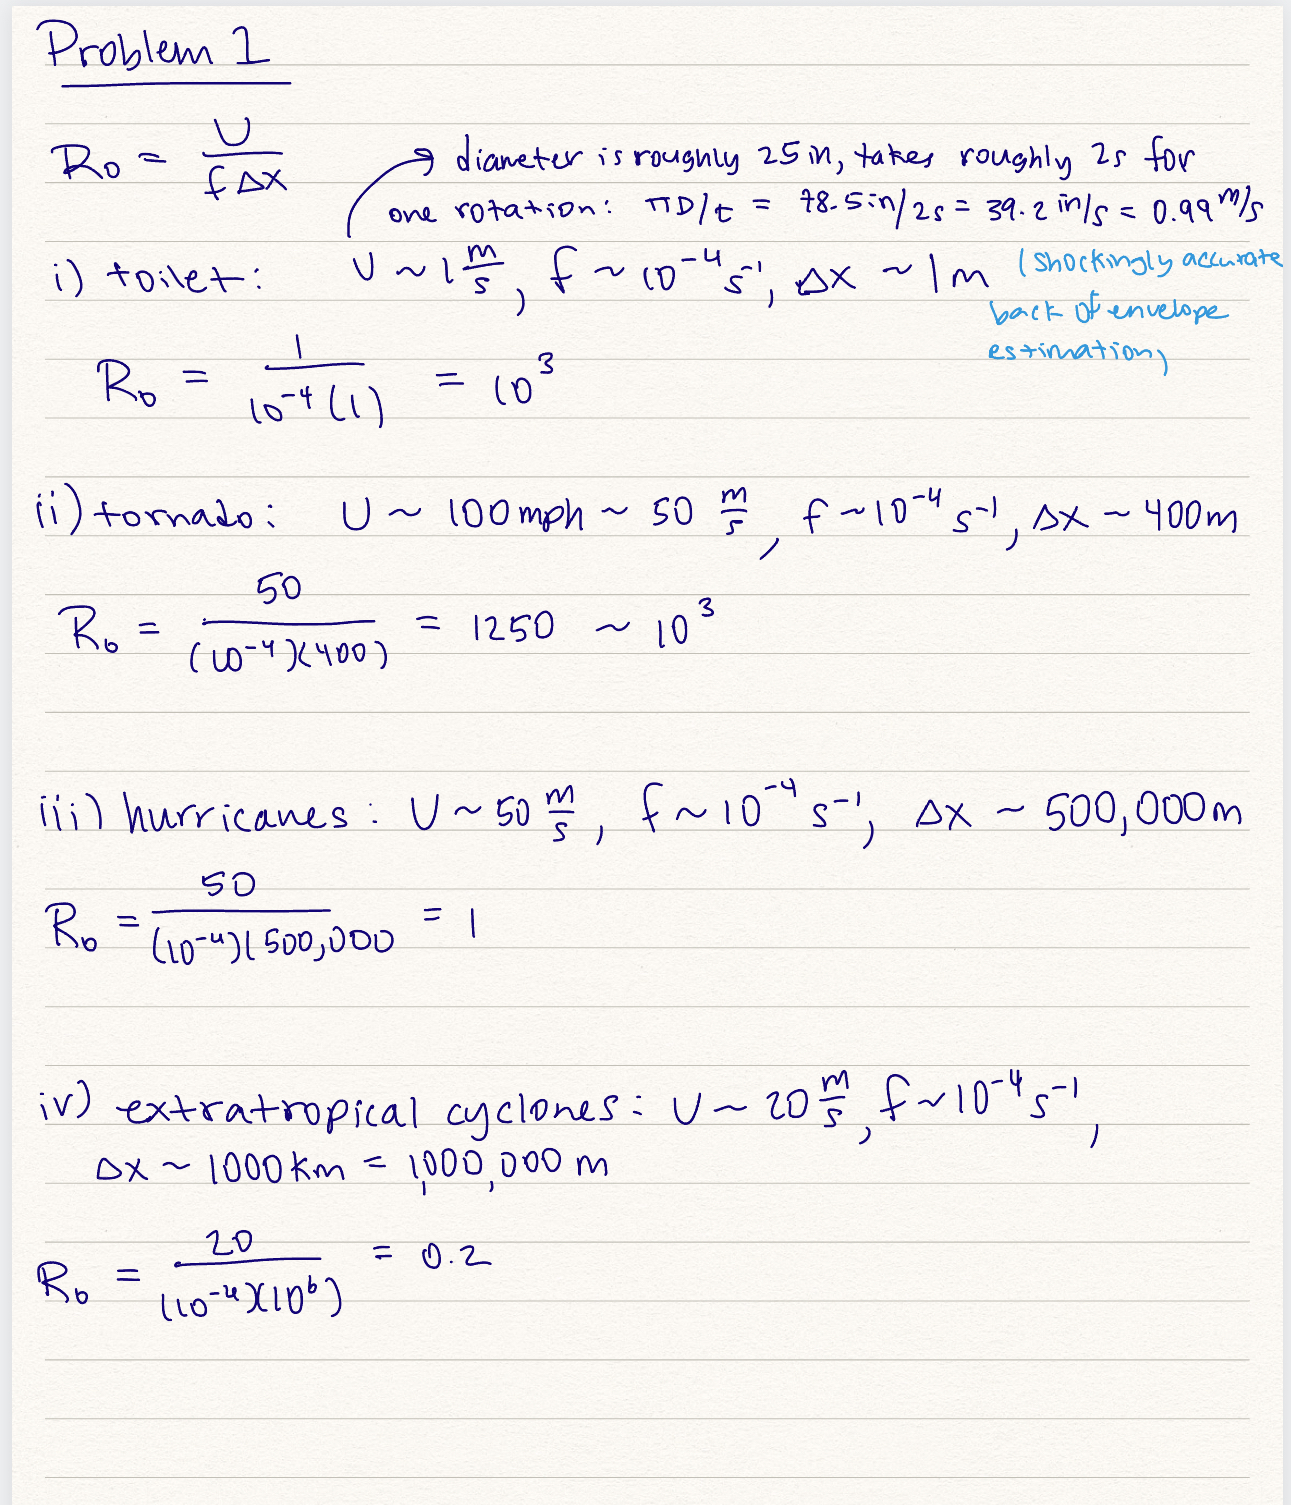 Problem 1
Ro = U / f Δx
→ diameter is roughly 25 in, takes roughly 2s for
one rotation: πD/t = 78.5in/2s = 39.2 in/s = 0.99 m/s
i) toilet: U ~ 1 m/s, f ~ 10⁻⁴ s⁻¹, Δx ~ 1m (shockingly accurate
back of envelope
estimation)
Ro = 1 / 10⁻⁴(1) = 10³
ii) tornado: U ~ 100mph ~ 50 m/s, f ~ 10⁻⁴ s⁻¹, Δx ~ 400m
Ro = 50 / (10⁻⁴)(400) = 1250 ~ 10³
iii) hurricanes: U ~ 50 m/s, f ~ 10⁻⁴ s⁻¹, Δx ~ 500,000m
Ro = 50 / (10⁻⁴)(500,000 = 1
iv) extratropical cyclones: U ~ 20 m/s, f ~ 10⁻⁴ s⁻¹,
Δx ~ 1000km = 1,000,000 m
Ro = 20 / (10⁻⁴)(10⁶) = 0.2